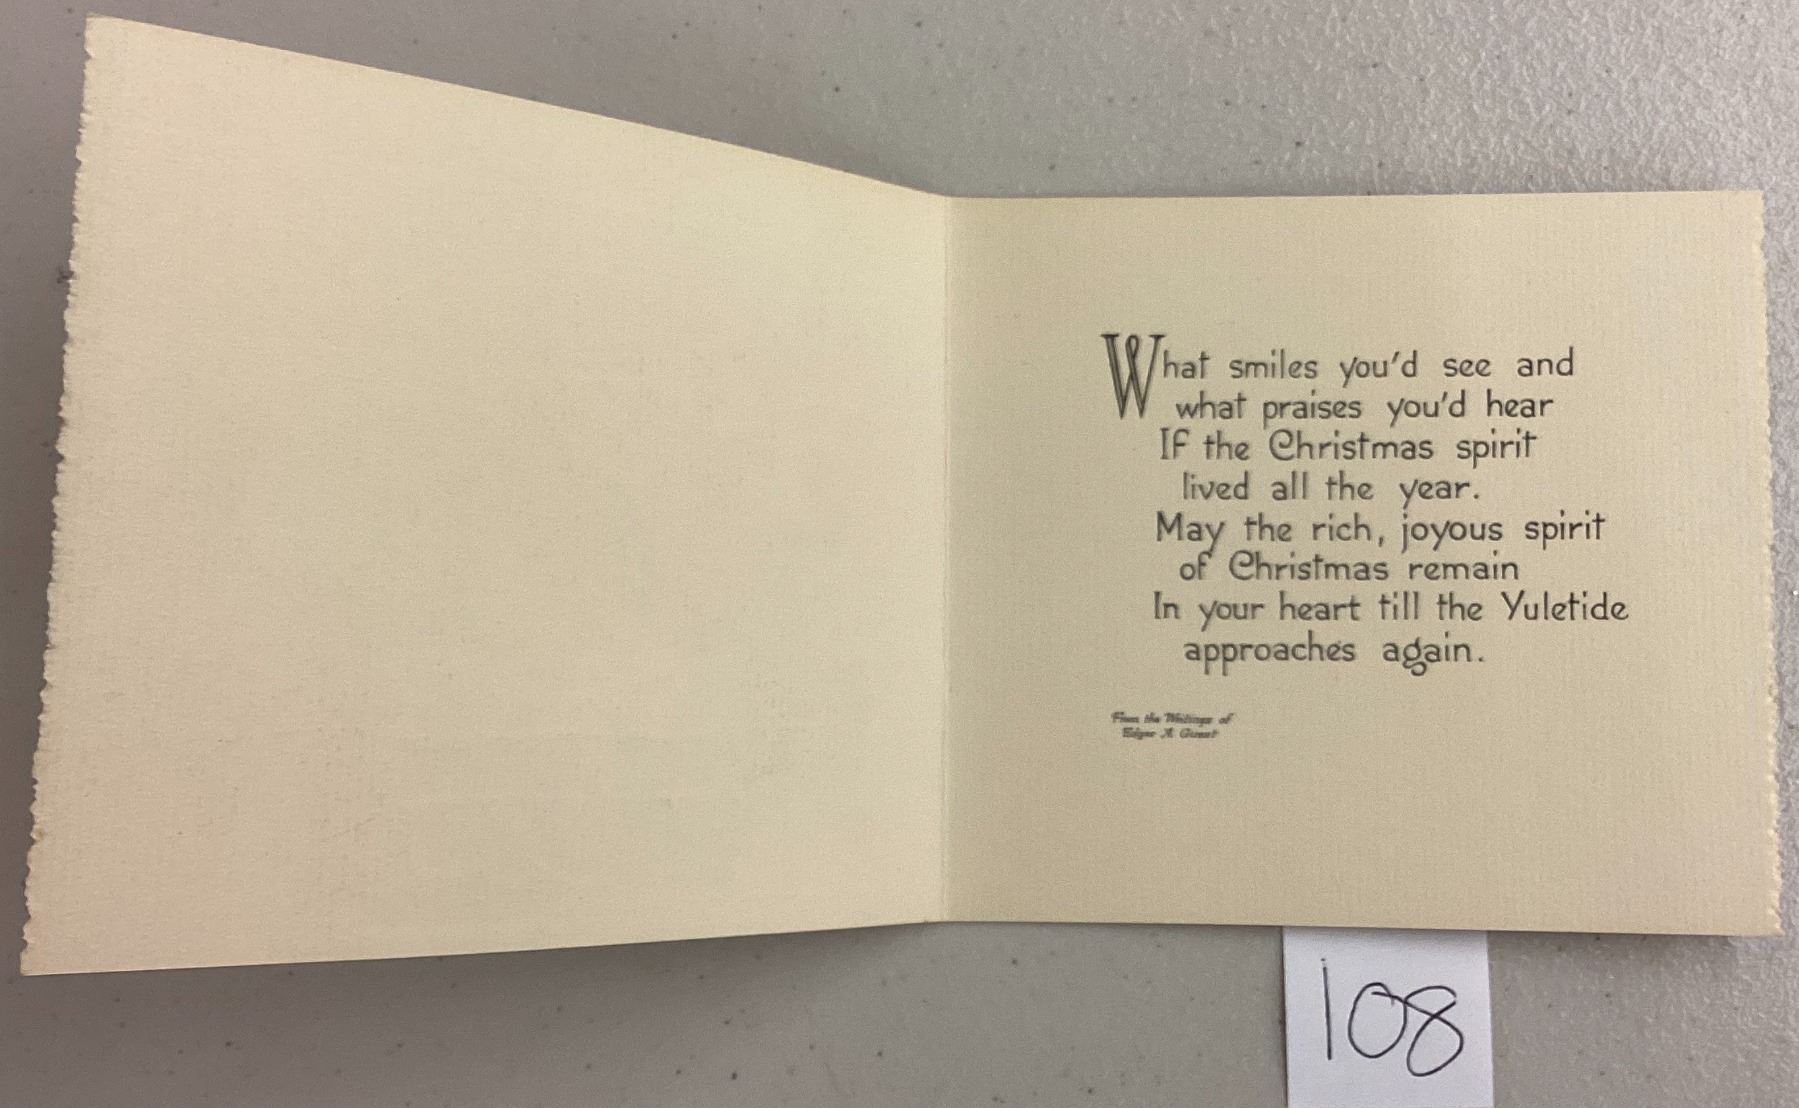 What smiles you'd see and
what praises you'd hear
If the Christmas spirit
lived all the year.
May the rich, joyous spirit
of Christmas remain
In your heart till the Yuletide
approaches again.
From the Writings of
Edgar A. Guest
108